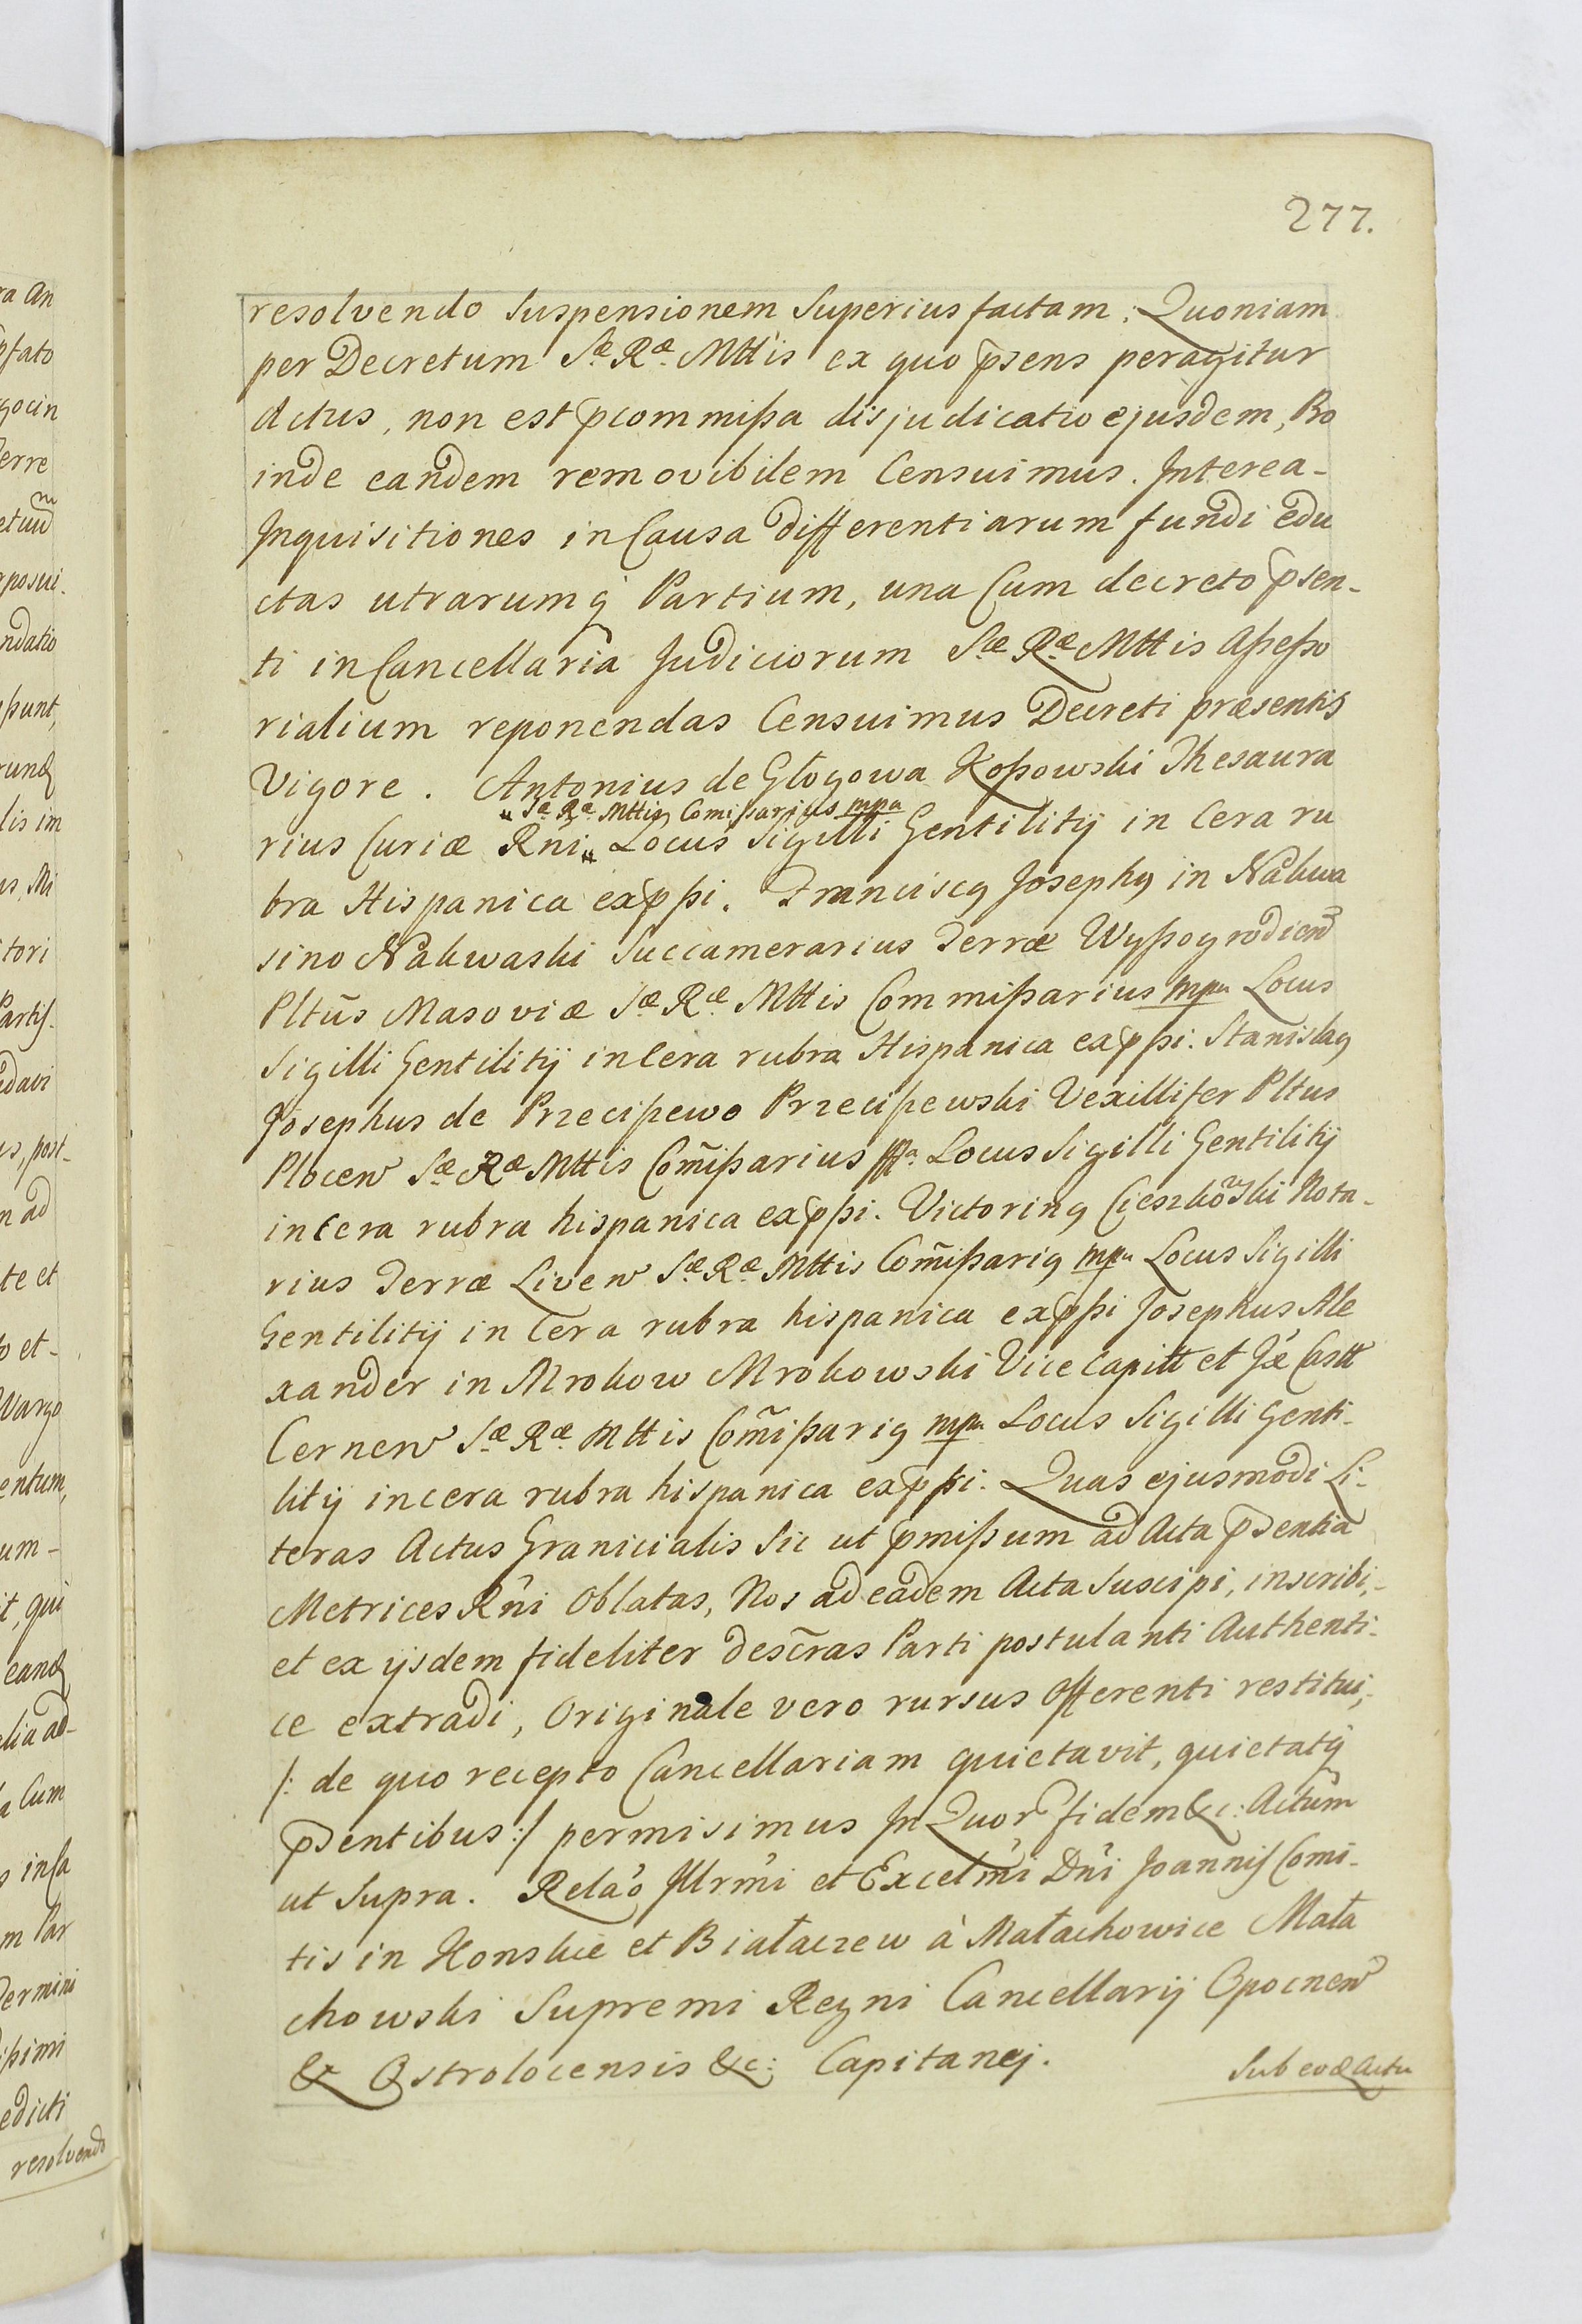 277.
resolvendo Suspensionem Superius factam. Quoniam
per Decretum Sæ Ræ Mttis ex quo p̄sens peragitur
Actus, non est p̄commißa disjudicatio ejusdem, Pro
inde eandem removibilem Censuimus. Interea-
Inquisitiones in Causa differentiarum fundi edu
ctas utrarumq́ Partium, una Cum decreto p̄sen-
ti in Cancellaria Judiciorum Sæ Ræ Mttis Aßeßo
rialium reponendas Censuimus Decreti præsentis
Vigore. Antonius de Głogowa Koßowski Thesaura
" Sæ Ræ Mttis Comißarius mpa
rius Curiæ Rni " Locus Sigilli Gentilitij in Cera ru
bra Hispanica exp̄ßi. Franciscq Josephq in Nakwa
sino Nakwaski Succamerarius Terræ Wyßogrodien̄
Pltūs Masoviæ Sæ Ræ Mttis Commißarius mpa Locus
Sigilli Gentilitij in Cera rubra Hispanica exp̄ßi. Stanislaq
Josephus de Przecißewo Przecißewski Vexillifer Pltus
Plocen̄ Sæ Ræ Mttis Com̄ißarius mpa Locus Sigilli Gentilitij
in Cera rubra hispanica exp̄ßi. Victorinq Cieszkowski Nota-
rius Terræ Liven̄ Sæ Ræ Mttis Com̄ißariq mpa Locus Sigilli
Gentilitij in Cera rubra hispanica exp̄ßi Josephus Ale
xander in Mrokow Mrokowski Vice Capitt et Jæ Castr
Cernen̄ Sæ Ræ Mttis Com̄ißariq mpa Locus Sigilli Genti-
litij in cera rubra hispanica exp̄ßi. Quas ejusmodi Li-
teras Actus Granicialis Sic ut p̄mißum ad Acta p̄sentia
Metrices Rn̄i Oblatas, Nos ad eadem Acta Suscipi, inscribi,-
et ex ijsdem fideliter descr̄as Parti postulanti Authenti-
ce extradi, Originale vero rursus Offerenti restitui,-
/: de quo recepto Cancellariam quietavit, quietatq́
p̄sentibus :/ permisimus In Quor̄ fidem &c: Actūm
ut Supra. Relāo Illrm̄i et Excelm̄i Dn̄i Joannis Comi-
tis in Konskie et Białaczew à Małachowice Mała
chowski Supremi Regni Cancellarij Opocnen̄
& Ostrolocensis &c: Capitanej.
Sub eodē Actu